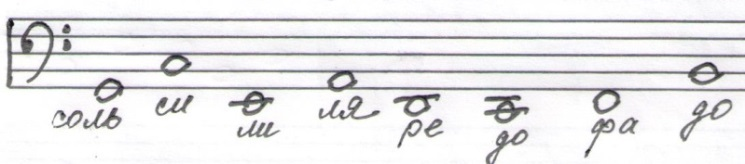 соль си ми ля ре до фа до